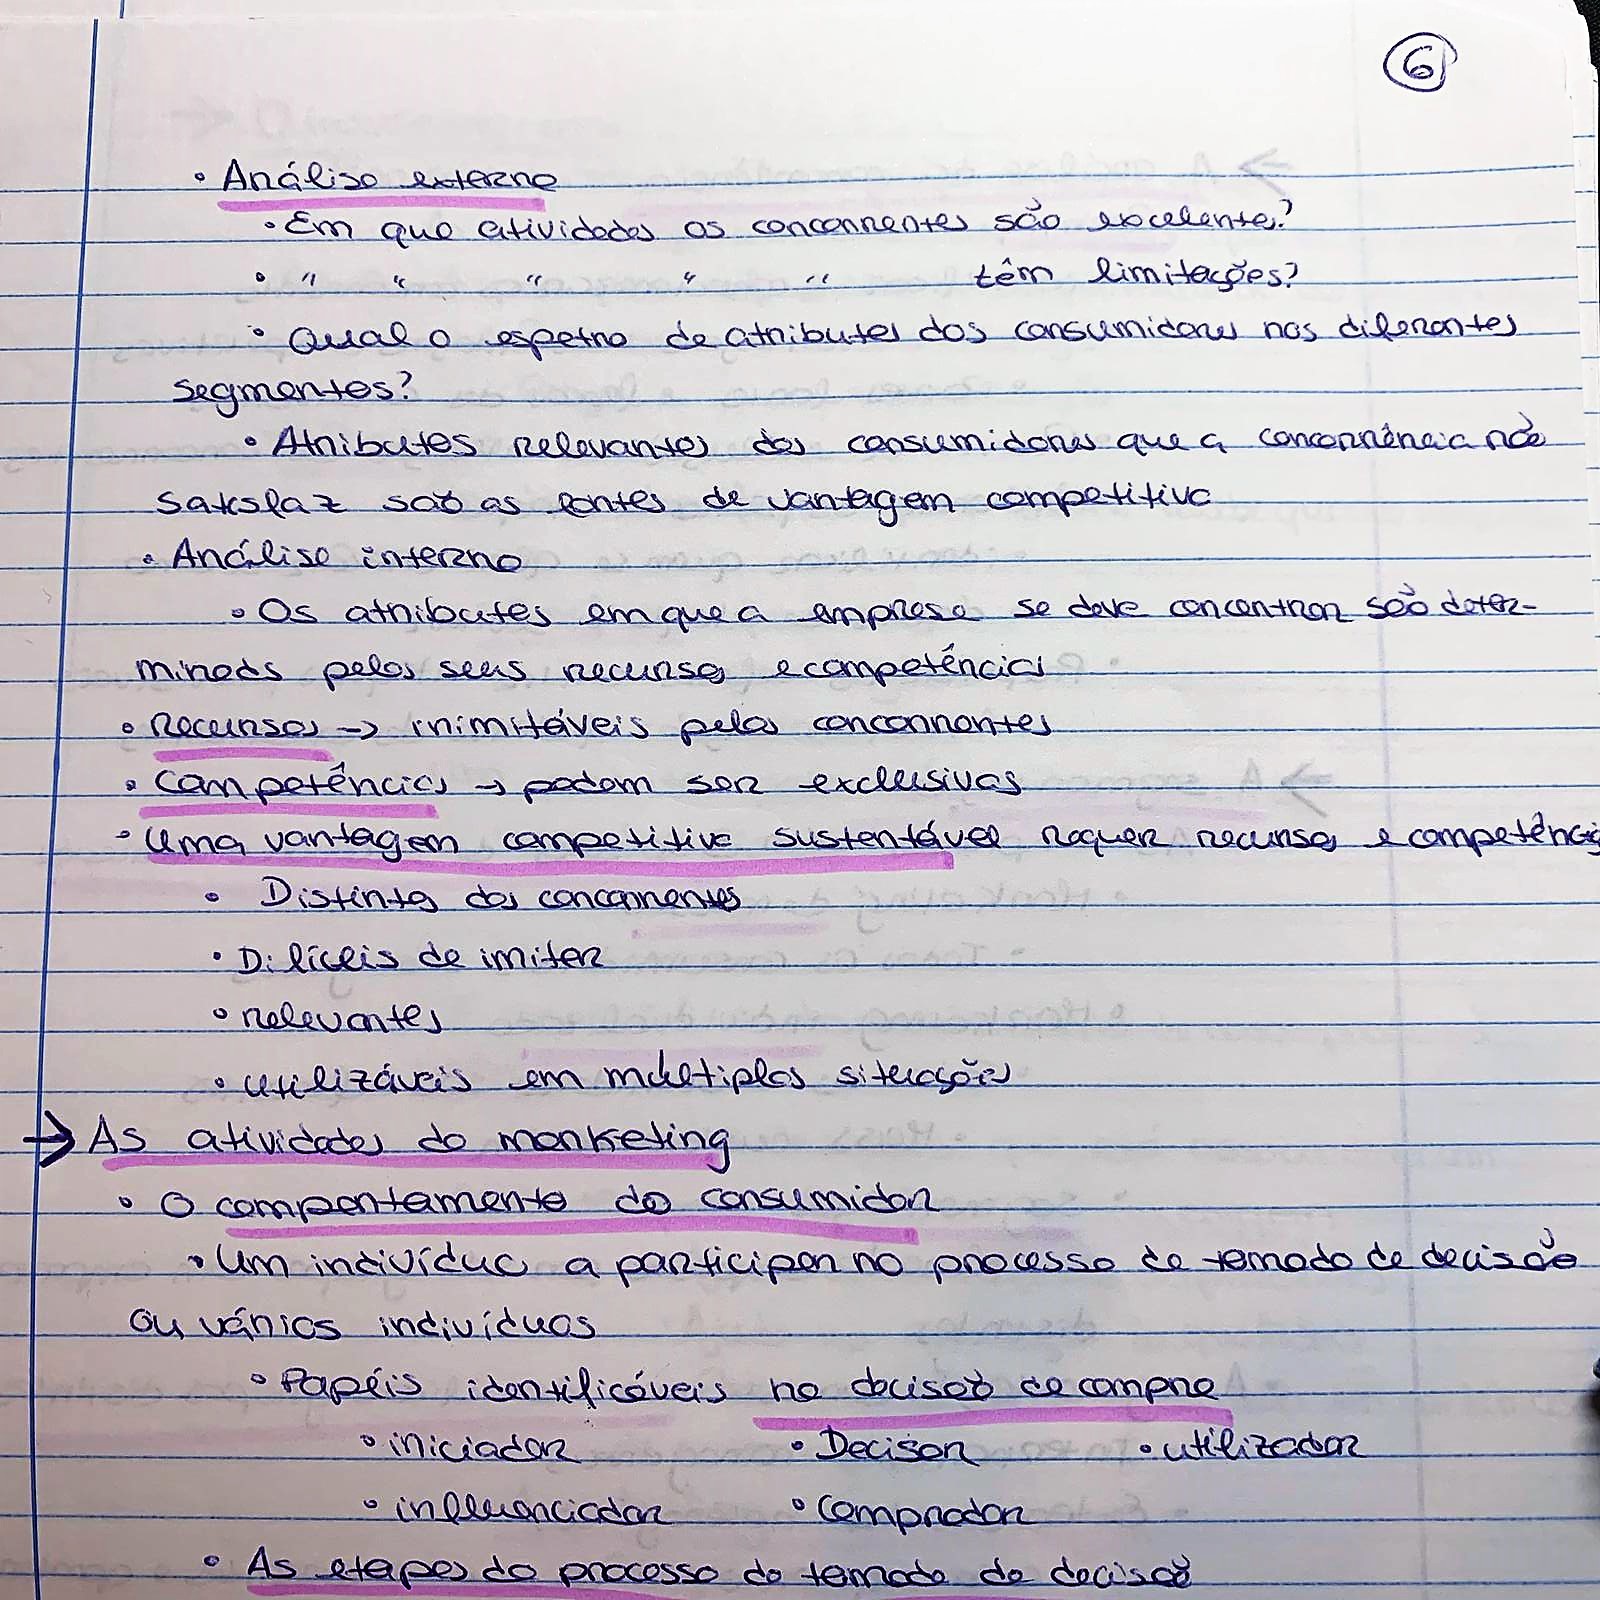 6
• Análise externa
• Em que atividades os concorrentes são excelentes?
• " " " " " têm limitações?
• Qual o espetro de atributos dos consumidores nos diferentes
segmentos?
• Atributos relevantes dos consumidores que a concorrência não
satisfaz são as fontes de vantagem competitiva
• Análise interna
• Os atributos em que a empresa se deve concentrar são deter-
minados pelos seus recursos e competências
• Recursos → inimitáveis pelos concorrentes
• Competências → podem ser exclusivas
• Uma vantagem competitiva sustentável requer recursos e competência
• Distintos dos concorrentes
• Difíceis de imitar
• relevantes
• utilizáveis em múltiplas situações
→ As atividades do marketing
• O comportamento do consumidor
• Um indivíduo a participar no processo de tomada de decisão
ou vários indivíduos
• Papéis identificáveis na decisão de compra
• iniciador • Decisor • utilizador
• influenciador • Comprador
• As etapas do processo de tomada de decisão